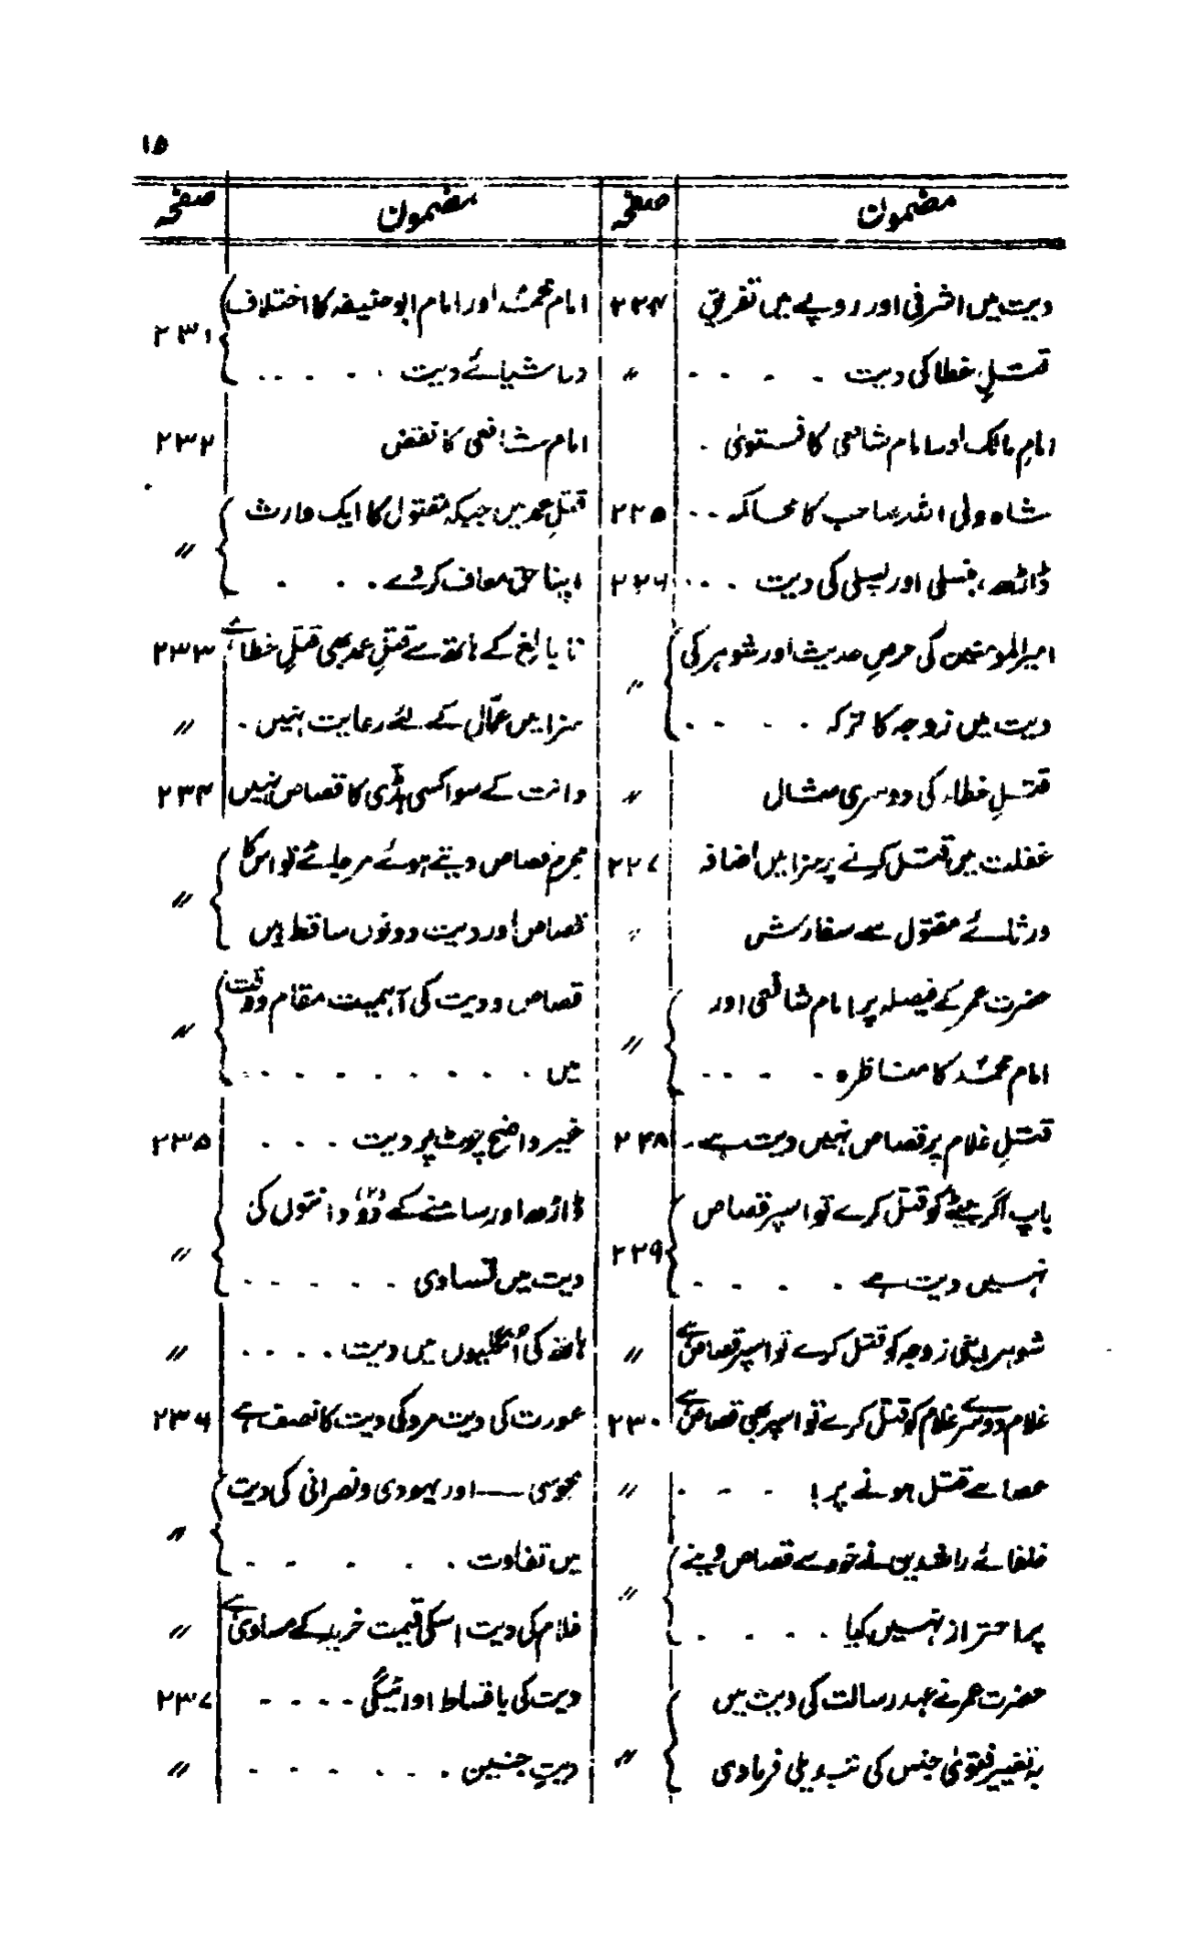 ۱۵
مضمون صفحہ مضمون صفحہ
دیت میں اشرفی اور روپے میں تفریق ۲۲۴
قتلِ خطا کی دیت - - - - 〃
امام مالک اور امام شافعی کا فستویٰ -
شاہ ولی اللہ صاحب کا محاکمہ - - ۲۲۵
ڈاڑھ، ہنسلی اور پسلی کی دیت - - - ۲۲۶
امیر المومنین کی حرصِ حدیث اور شوہر کی
دیت میں زوجہ کا ترکہ - - - - 〃
قتلِ خطاء کی دوسری مثال 〃
غفلت میں قتل کرنے پر سزا میں اضافہ ۲۲۷
ورثائے مقتول سے سفارش 〃
حضرت عمر کے فیصلہ پر امام شافعی اور
امام محمدؒ کا مناظرہ - - - - 〃
قتلِ غلام پر قصاص نہیں دیت ہے - ۲۴۸
باپ اگر بیٹے کو قتل کرے تو اسپر قصاص
نہیں دیت ہے - - - - ۲۲۹
شوہر اپنی زوجہ کو قتل کرے تو اسپر قصاص ہے 〃
غلام دوسرے غلام کو قتل کرے تو اسپر بھی قصاص ہے ۲۳۰
عصا سے قتل ہونے پر! - - - 〃
خلفائے راشدین نے خود سے قصاص دینے
پر احتراز نہیں کیا - - - - 〃
حضرت عمر نے عہد رسالت کی دیت میں
بہ تغییر فتویٰ جنس کی تبدیلی فرمادی 〃
امام محمدؒ اور امام ابو حنیفہ کا اختلاف
در اشیائے دیت - - - - - ۲۳۱
امام شافعی کا نقض ۲۳۲
قتلِ عمد میں جبکہ مقتول کا ایک وارث
اپنا حق معاف کر دے - - - 〃
نابالغ کے ہاتھ سے قتلِ عمد بھی قتلِ خطا ہے ۲۳۳
سزا میں عمّال کے لئے رعایت نہیں - 〃
دانت کے سوا کسی ہڈی کا قصاص نہیں ۲۳۴
مجرم قصاص دیتے ہوئے مر جائے تو اس کا
قصاص اور دیت دونوں ساقط ہیں 〃
قصاص و دیت کی اہمیت مقام و وقت
میں - - - - - - - - - 〃
غیر واضح چوٹ پر دیت - - - ۲۳۵
ڈاڑھ اور سامنے کے دو (۲) دانتوں کی
دیت میں تساوی - - - - - 〃
ہاتھ کی انگلیوں میں دیت - - - - 〃
عورت کی دیت مرد کی دیت کا نصف ہے ۲۳۶
مجوسی — اور یہودی و نصرانی کی دیت
میں تفاوت - - - - - 〃
غلام کی دیت اسکی قیمت خرید کے مساوی ہے 〃
دیت کی باقساط ادائیگی - - - - ۲۳۷
دیتِ جنین - - - - - - 〃